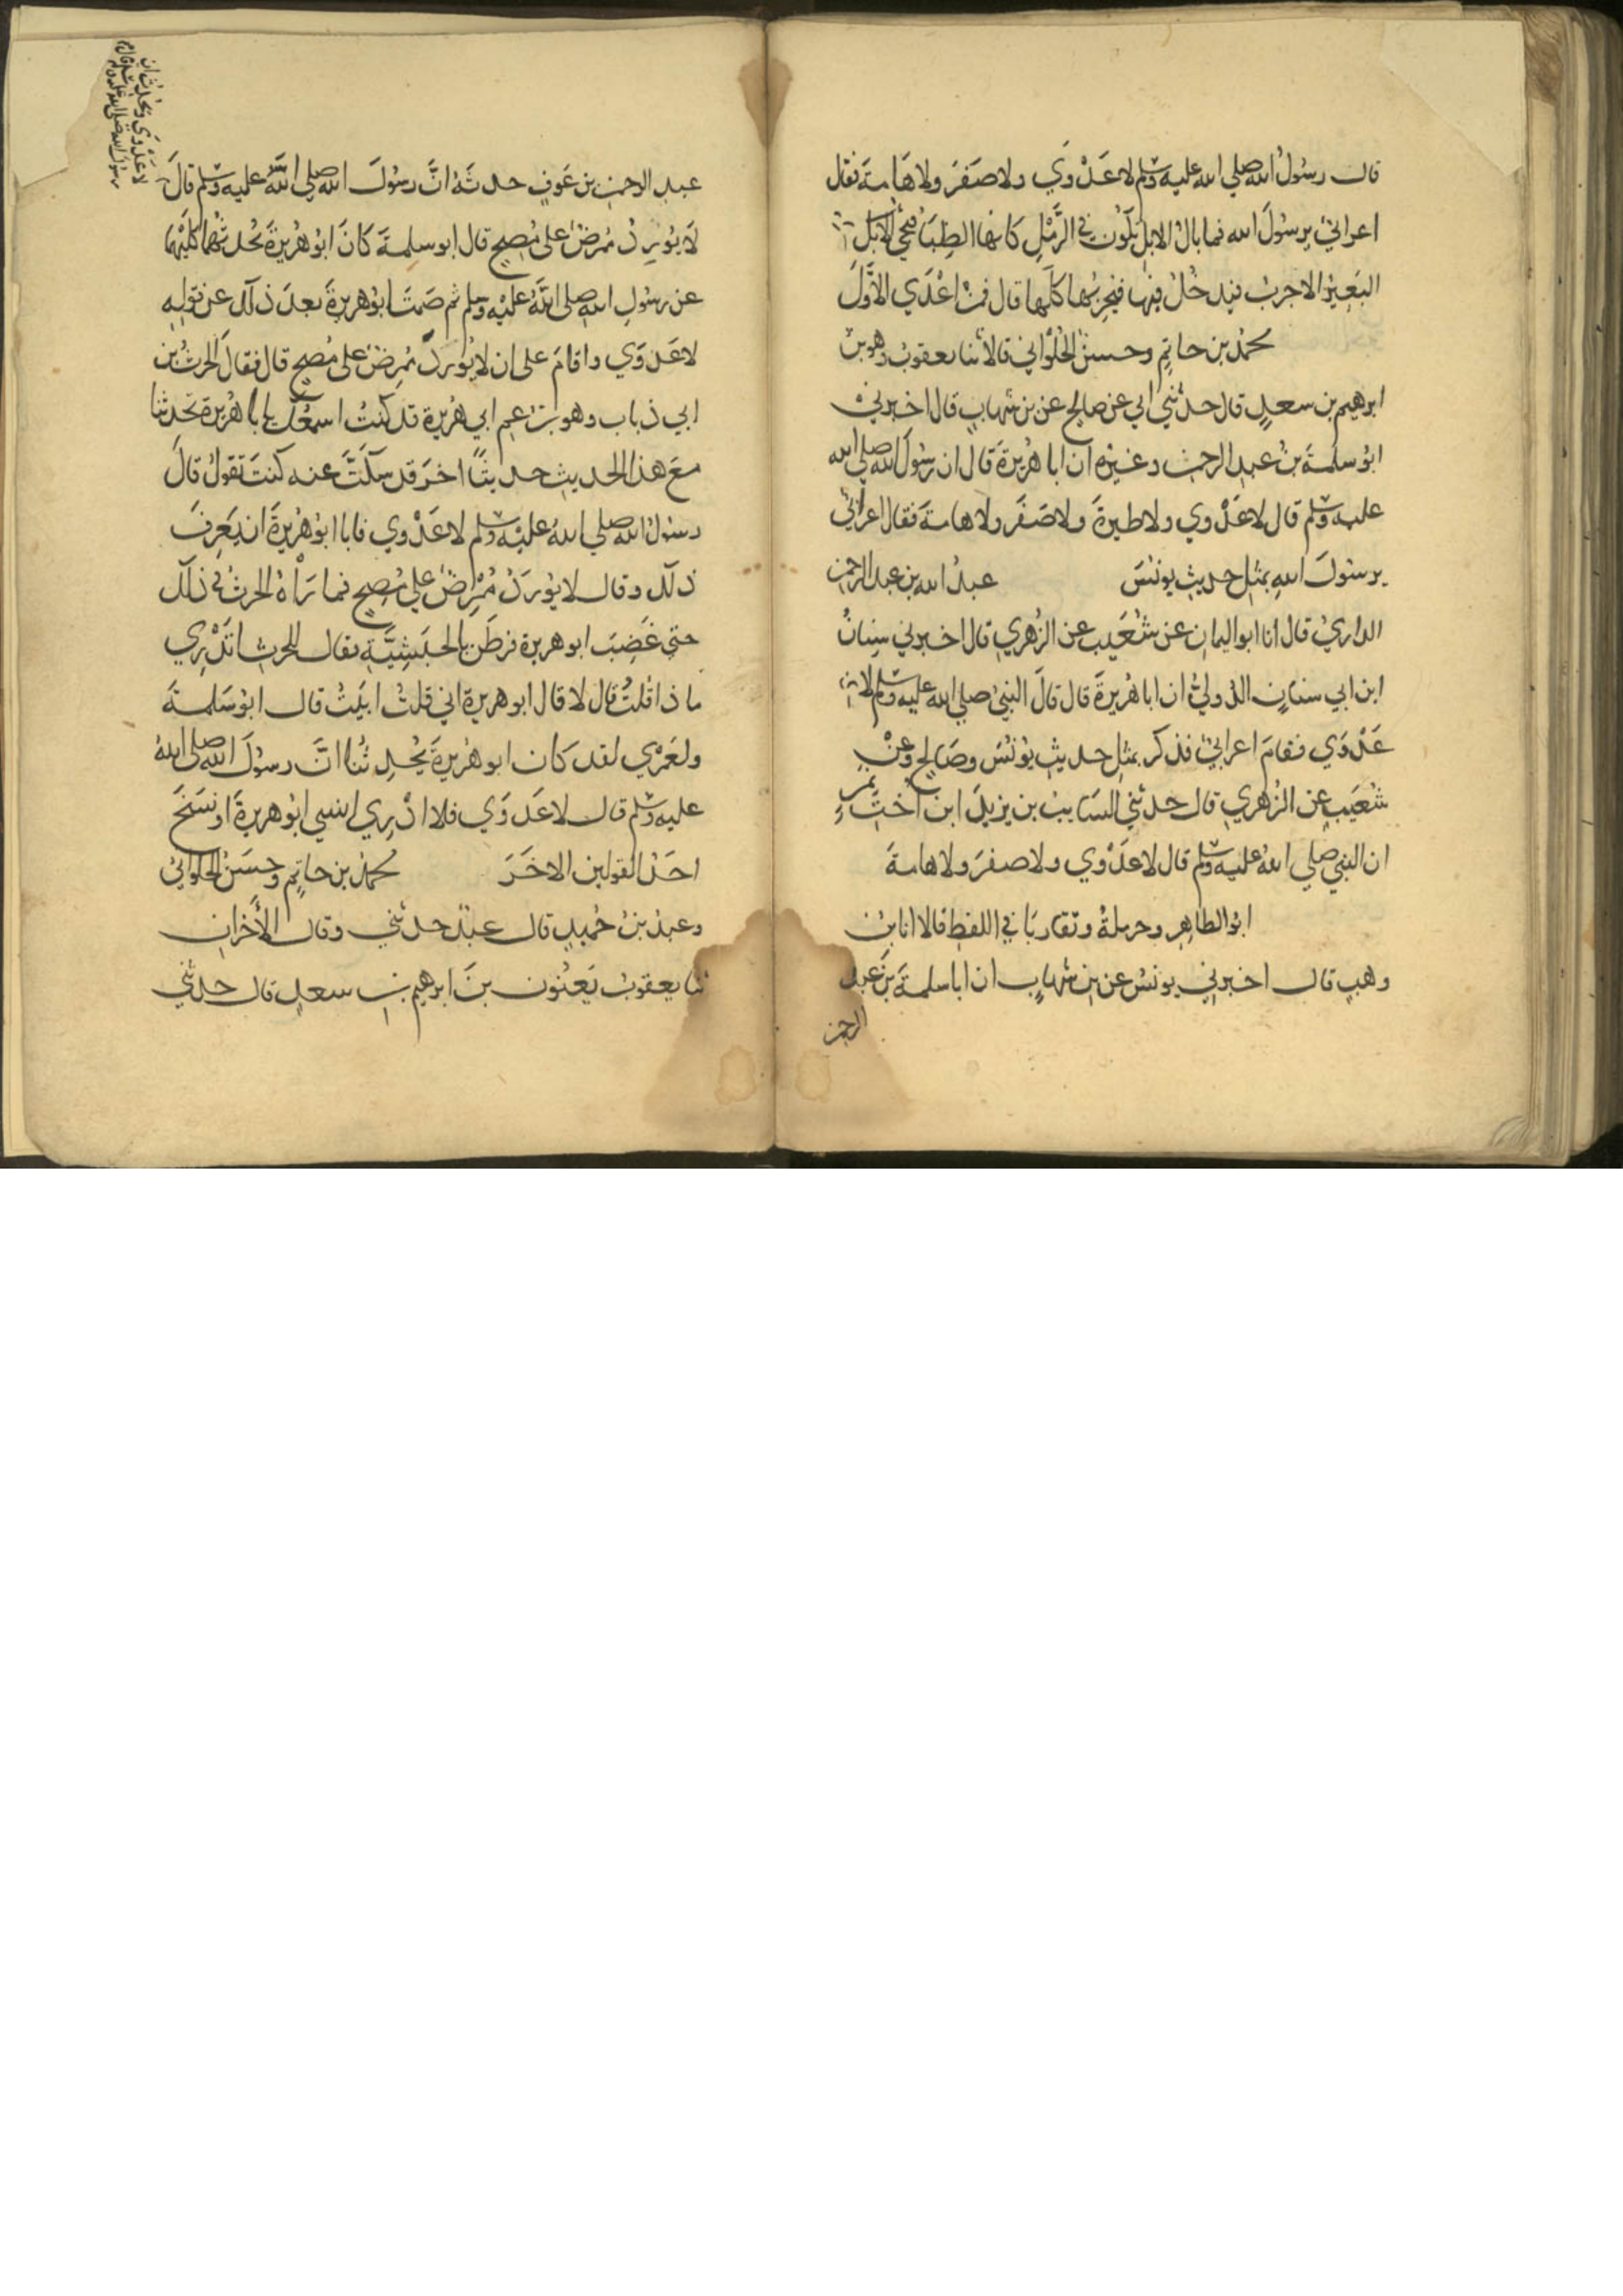 قال رسُولُ الله صلي الله عليه وسلم لا عَدْوَي ولا صَفَرَ ولا هَامة فقال
اعرابيٌ يرسُولَ الله فما بال الابل تكون في الرَّمْلِ كانها الظِبَا فيجيُ
البَعِيرُ الاجربُ فيدخُلُ فيها فيُجرِبُها كلَّها قال فمن اعْدَي الاوَّلَ
محمدُ بن حاتمٍ وحسنٌ الحُلْوَاني قالا ثنا يعقوبُ وهو بن
ابرهيم بن سعدٍ قال حدثني ابي عن صالح عن بن شهابٍ قال اخبرني
ابوُ سلمةَ بنُ عبدِ الرحمن وغيرُه ان ابا هُرَيرةَ قال ان رسُولَ الله صلي الله
عليه وسلم قال لا عَدْوي ولا طيرةَ ولا صَفَرَ ولا هامةَ فقال اعرابيٌ
يرسُولَ اللهِ بمثلِ حديثِ يونسَ عبدُ الله بن عبد الرحمن
الدارميُ قال انا ابو اليمانِ عن شُعَيبٍ عن الزُهري قال اخبرني سِنانُ
ابن ابي سنانٍ الدُوليُ ان ابا هُرَيرةَ قال قالَ النبيُ صلي الله عليه وسلم لا
عَدْوَي فقامَ اعرابيٌ فذكر بمثلِ حديثِ يونُسَ وصَالحٍ وعن
شُعَيبٍ عن الزُهري قال حدثني السَايبُ بن يزيدَ ابن اختِ نمرٍ
ان النبيَ صلي اللهُ عليه وسلم قال لا عَدْوي ولا صفرَ ولا هامةَ
ابوُ الطاهِرِ وحرملةُ وتقاربَا في اللفظِ قالا انا بنُ
وهبٍ قال اخبرني يونسُ عن بن شهابٍ ان ابا سلمةَ بنَ عبد
الرحمن
عبد الرحمن بن عَوفٍ حدثَهُ انَّ رسُولَ الله صلي اللهُ عليه وسلم قالَ
لا عَدْوَي ويُحدِثُ ان
رسُولَ الله صلي الله عليه وسلم قال
لا يُورِدُ مُمرِضٌ علي مُصِحٍ قال ابو سلمةَ كانَ ابوُ هُرَيرةَ يُحدثُهما كليْهما
عن رسُولِ الله صلي اللهُ عليْه وسلم ثم صَمتَ ابوُ هريرةَ بعدَ ذلك عن قوله
لا عَدوَي واقامَ علي ان لا يُوردَ مُمرِضٌ علي مُصحٍ قال فقالَ الحرثُ بن
ابي ذباب وهو بنُ عمِ ابي هُرَيرة قد كنتُ اسمعُك يا با هُرَيرة تحدثنا
معَ هذا الحديثِ حديثًا اخرَ قد سكَتَّ عنه كنتَ تقولُ قالَ
رسُولُ الله صلي اللهُ عليْه وسلم لا عَدْوي فابا ابوُ هُرَيرةَ ان يَعرِفَ
ذلك وقال لا يُورَدُ مُمْرِضٌ علي مُصحٍ فما رَأهُ الحرثُ في ذلك
حتي غَضِبَ ابو هريرة فرطَن بالحبَشيَّةِ فقال للحرث اتَدْري
ماذا قلتُ قال لا قال ابو هريرة اني قلتُ ابَيتُ قال ابوُ سَلمةَ
ولعَمْري لقد كان ابو هُرَيرةَ يُحدِثُنا انَّ رسُولَ الله صلي اللهُ
عليه وسلم قال لا عَدوَي فلا ادْرِي انسي ابُو هريرةَ او نسَخَ
احَدُ القولين الاخَرَ محمدُ بن حاتمٍ وحسَنٌ الحلوانيُ
وعبدُ بنُ حُميدٍ قال عبدٌ حدثني وقال الأخَرانِ
ثنا يعقوبُ يَعنُون بنَ ابرهيم بنِ سعدٍ قال حدثني